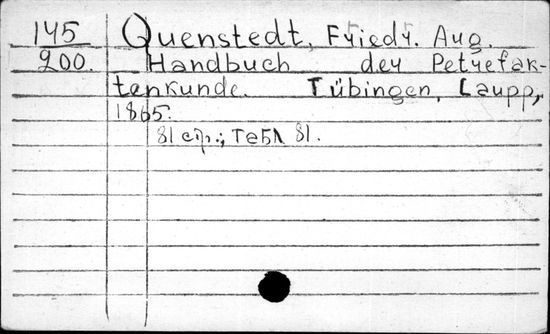 145 Quenstedt, Friedr. Aug.
200. Handbuch der Petrefak-
tenkunde. Tübingen, Laupp,
1865.
81 стр.; табл 81.